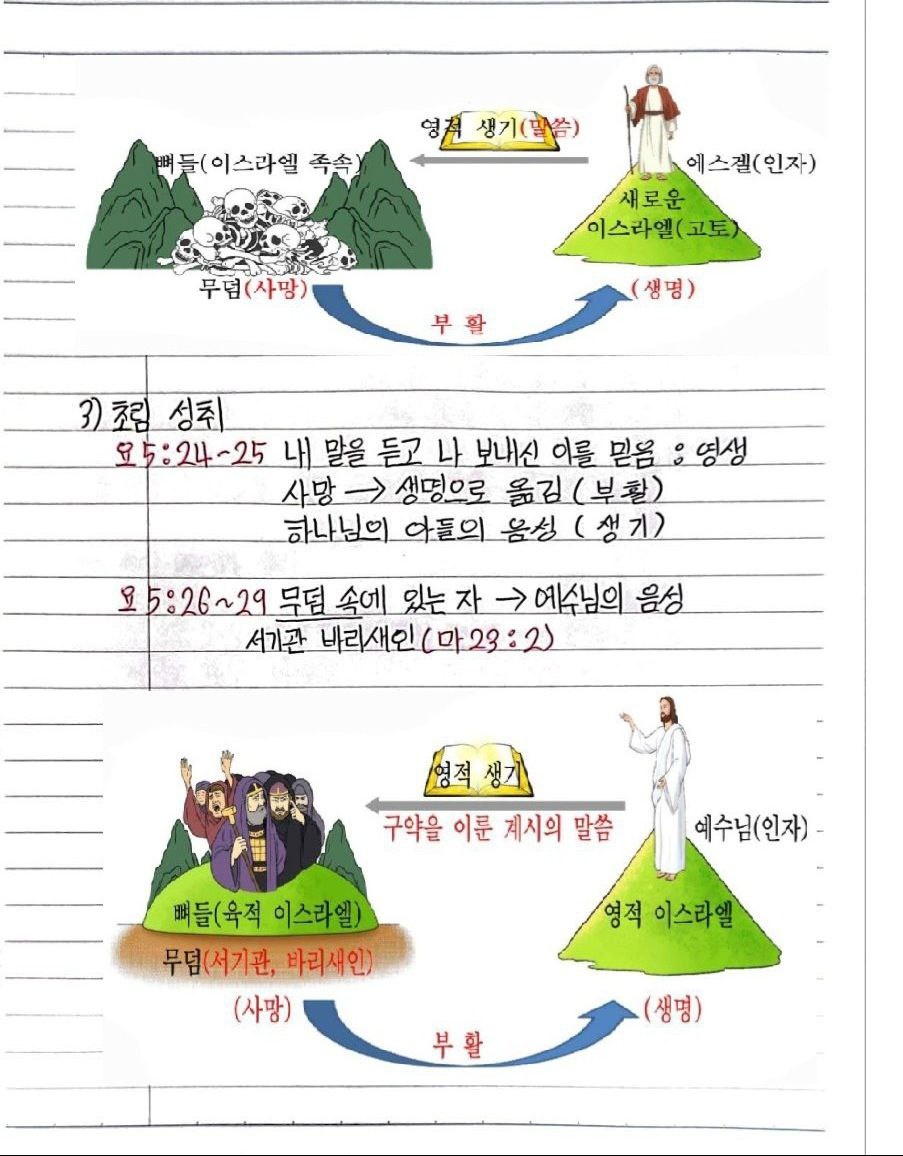 영적 생기(말씀)
뼈들(이스라엘 족속)
에스겔(인자)
새로운
이스라엘(고토)
무덤(사망)
(생명)
부 활
3) 초림 성취
요5:24~25 내 말을 듣고 나 보내신 이를 믿음 : 영생
사망 → 생명으로 옮김 (부활)
하나님의 아들의 음성 (생기)
요5:26~29 무덤 속에 있는 자 → 예수님의 음성
서기관 바리새인(마23:2)
영적 생기
구약을 이룬 계시의 말씀
예수님(인자)
뼈들(육적 이스라엘)
영적 이스라엘
무덤(서기관, 바리새인)
(사망)
(생명)
부 활